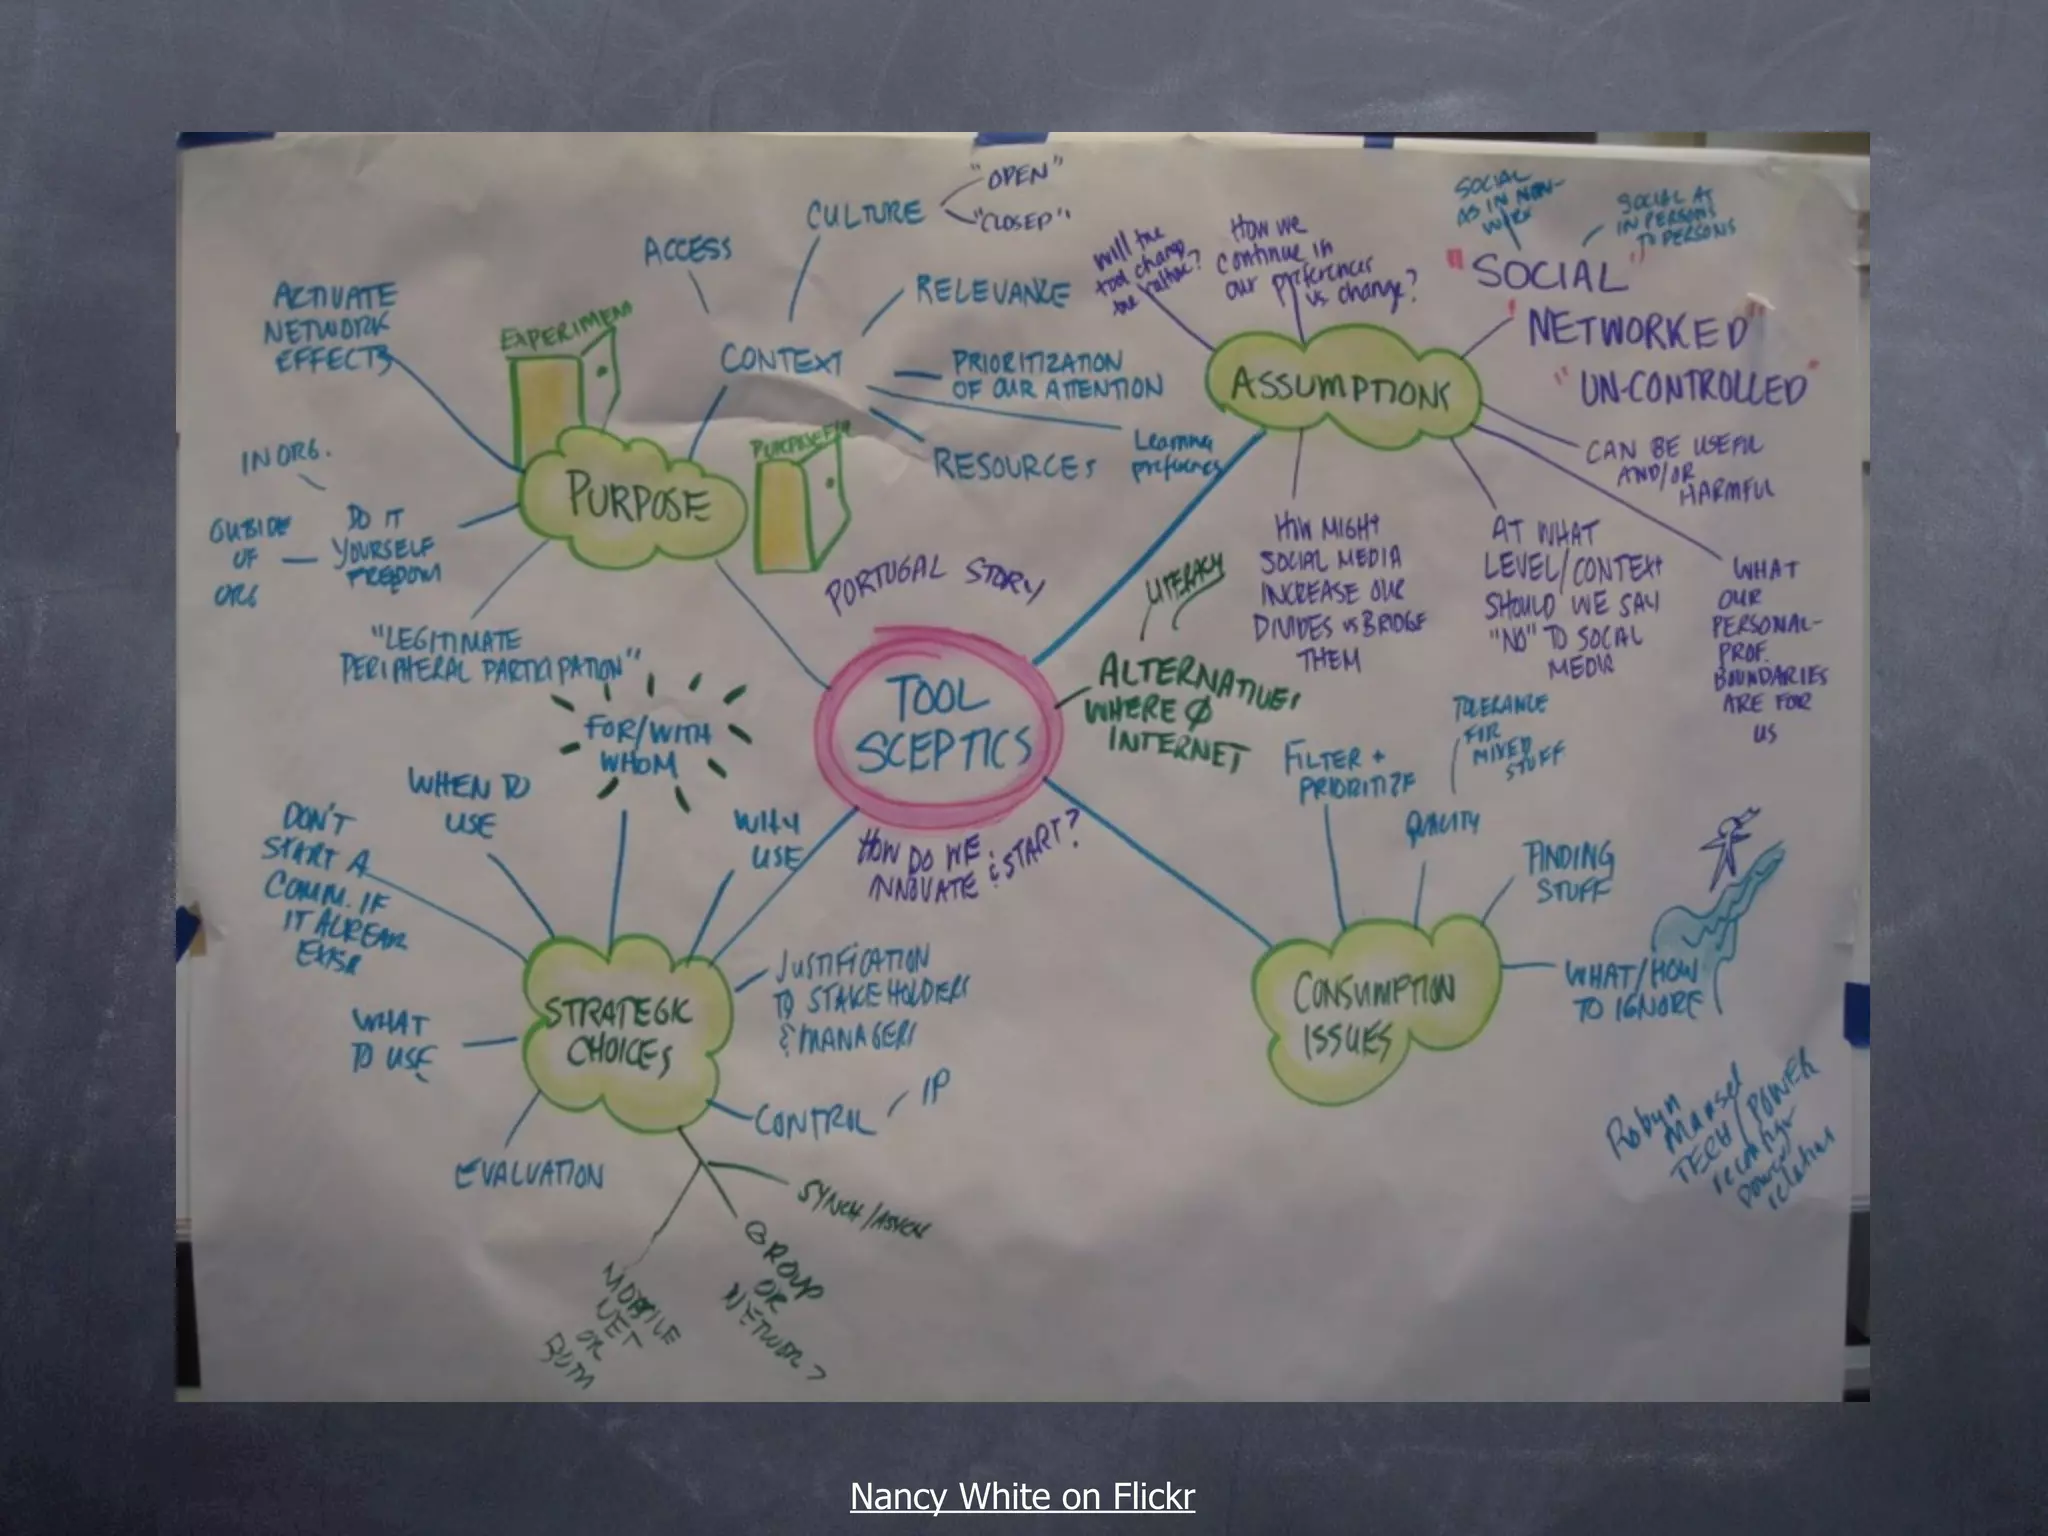 "OPEN"
CULTURE
"CLOSED"
ACCESS
RELEVANCE
CONTEXT
PRIORITIZATION
OF OUR ATTENTION
Learning
preferences
RESOURCES
ACTIVATE
NETWORK
EFFECTS
EXPERIMENT
PURPOSE
IN ORG.
OUTSIDE
OF
ORG
DO IT
YOURSELF
FREEDOM
"LEGITIMATE
PERIPHERAL PARTICIPATION"
Will the
tool change
the culture?
How we
continue in
our preferences
vs change?
SOCIAL
AS IN NON-
WORK
SOCIAL AS
IN PERSONS
TO PERSONS
"SOCIAL"
"NETWORKED"
"UN-CONTROLLED"
ASSUMPTIONS
CAN BE USEFUL
AND/OR
HARMFUL
HOW MIGHT
SOCIAL MEDIA
INCREASE OUR
DIVIDES vs BRIDGE
THEM
AT WHAT
LEVEL/CONTEXT
SHOULD WE SAY
"NO" TO SOCAL
MEDIA
WHAT
OUR
PERSONAL-
PROF.
BOUNDARIES
ARE FOR
US
PORTUGAL STORY
TOOL
SCEPTICS
HOW DO WE
INNOVATE & START?
LITERACY
ALTERNATIVES
WHERE Ø
INTERNET
FOR/WITH
WHOM
WHEN TO
USE
WHY
USE
DON'T
START A
COMM. IF
IT ALREADY
EXISTS
WHAT
TO USE
STRATEGIC
CHOICES
JUSTIFICATION
TO STAKEHOLDERS
& MANAGERS
CONTROL
IP
EVALUATION
SYNCH/ASYNCH
GROUP
OR
NETWORK?
MOBILE
NET
OR
BOTH
FILTER +
PRIORITIZE
TOLERANCE
FOR
MIXED
STUFF
QUALITY
FINDING
STUFF
CONSUMPTION
ISSUES
WHAT/HOW
TO IGNORE
Robyn
Mansel
TECH/POWER
reconfigr
power
relations
Nancy White on Flickr